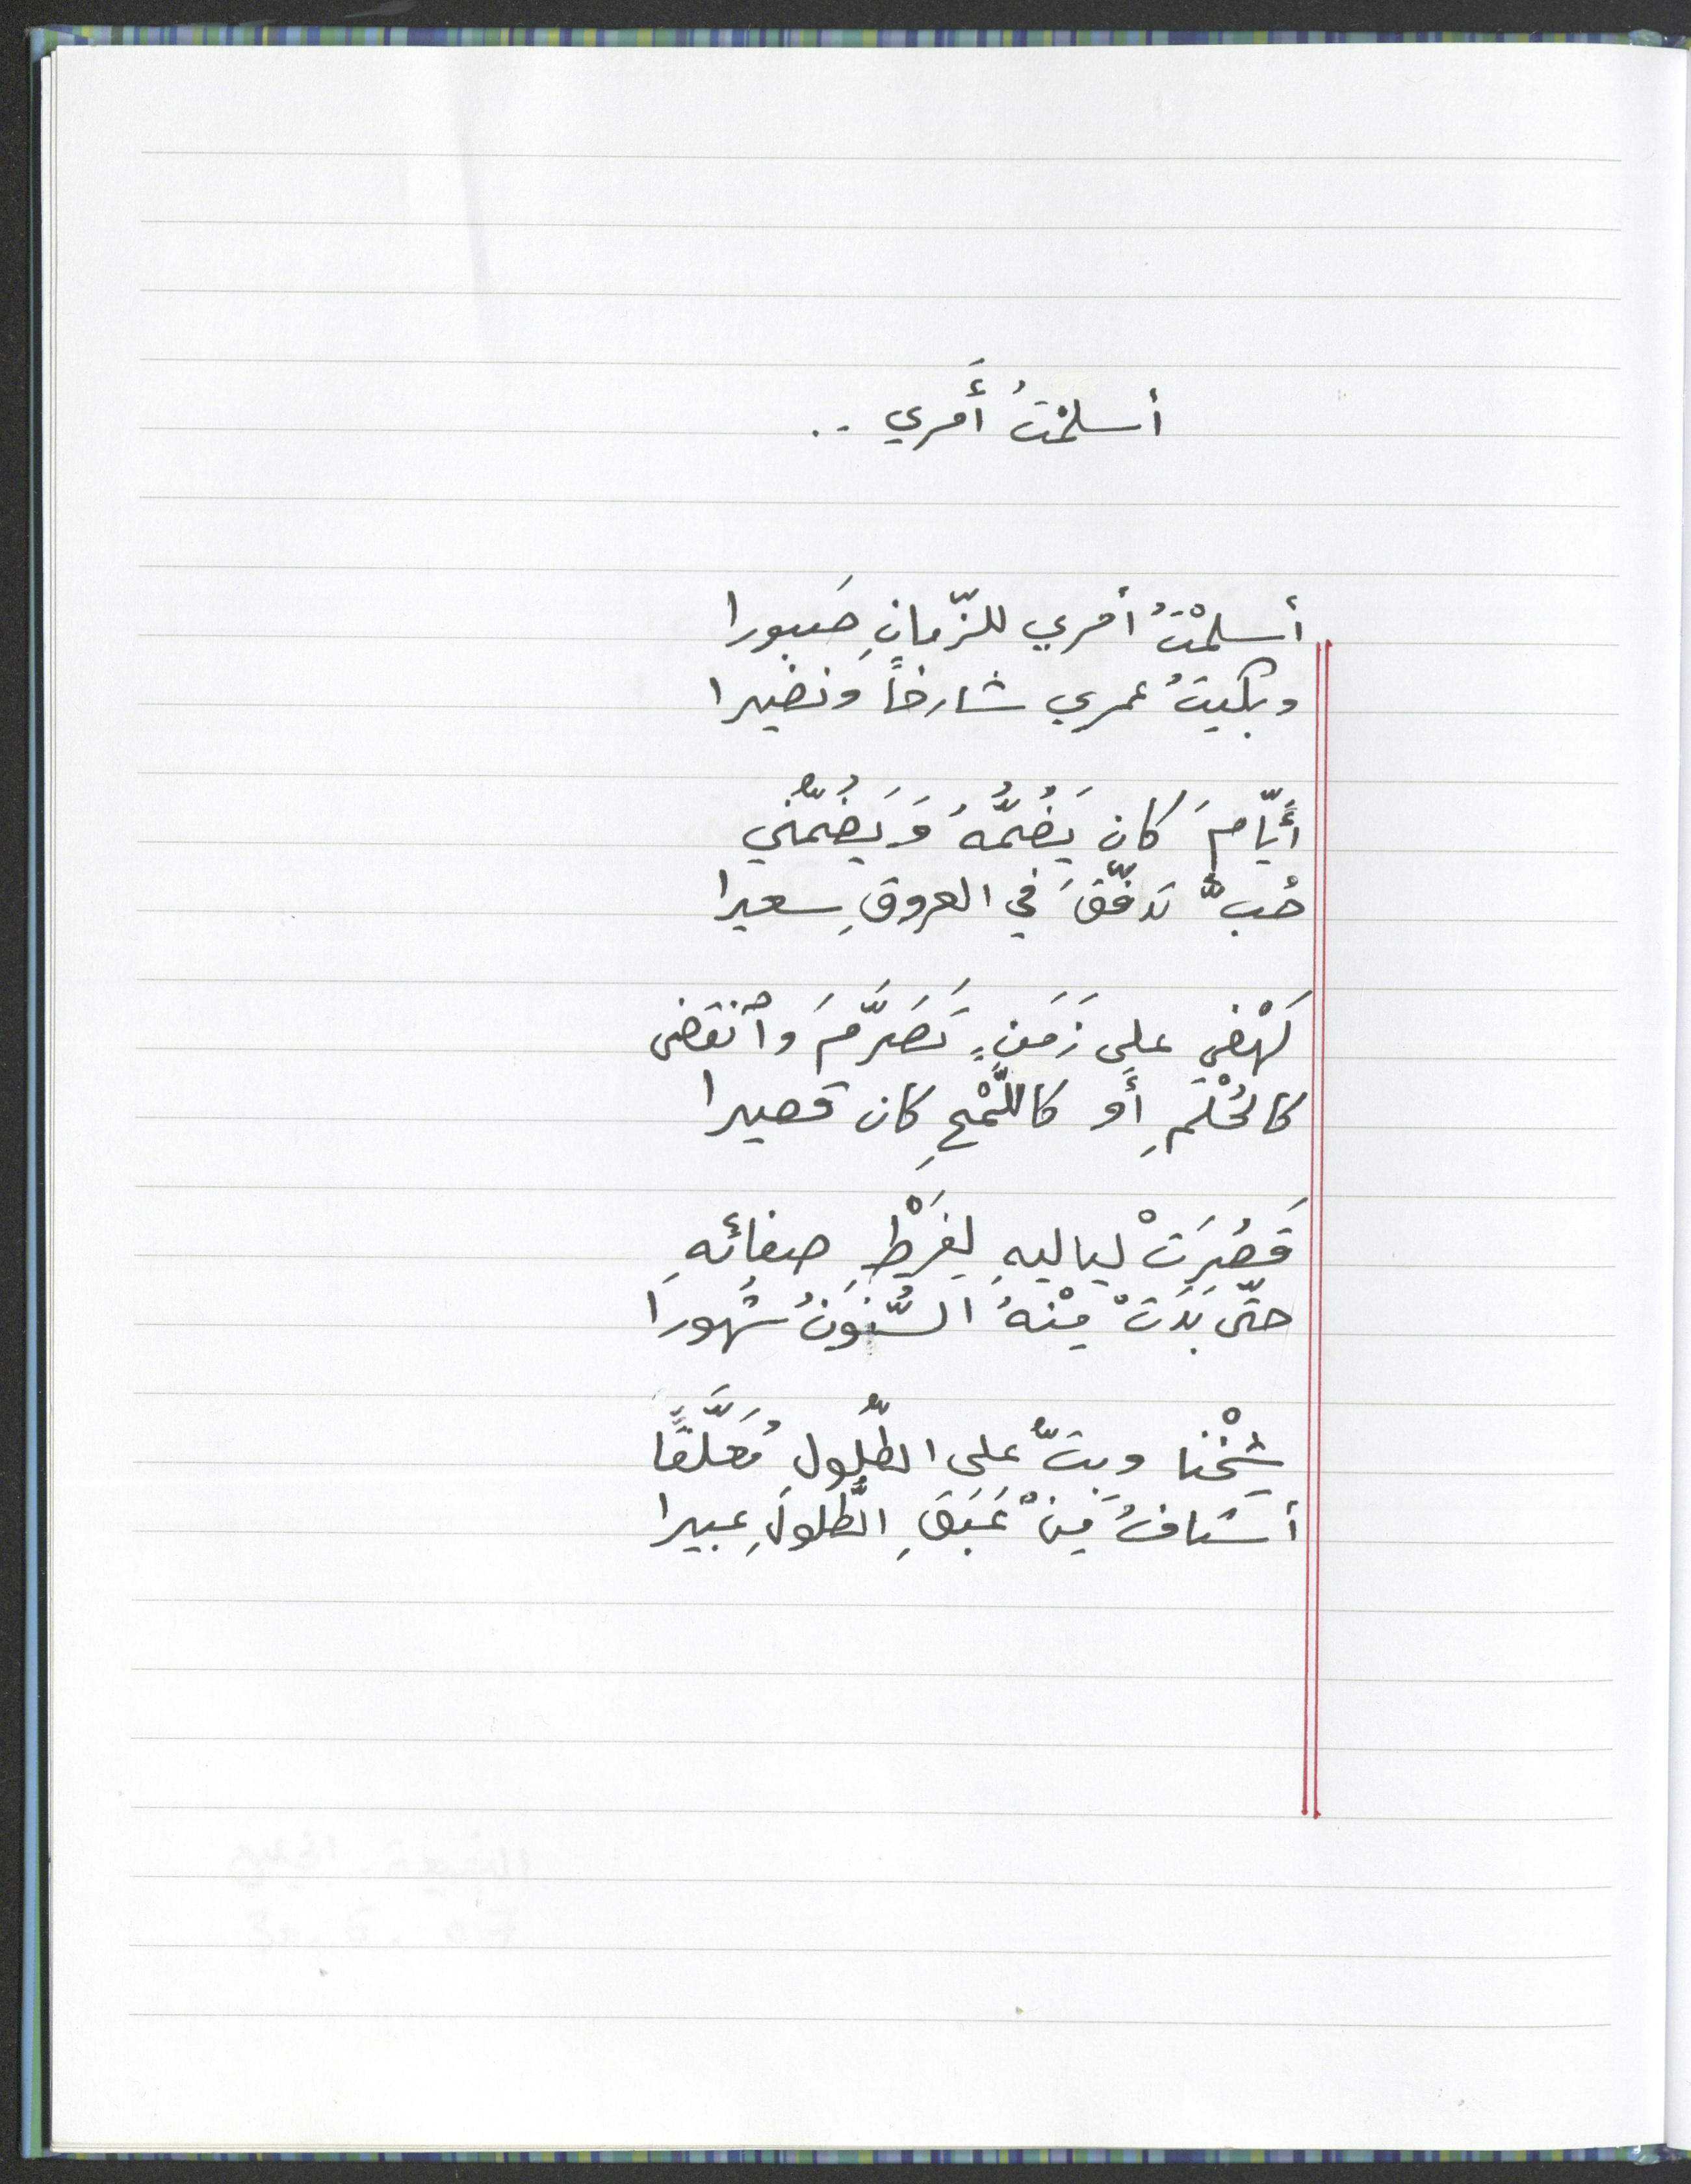 أسلمْتُ أَمري ..
أسلمْتُ أمري للزّمانِ صَبورا
وبكيتُ عمري شارخاً ونضيرا
أَيّامَ كان يَضُمُّهُ وَيَضُمُّني
حُبٌّ تدفّقَ في العروقِ سعيرا
لَهْفي على زَمَنٍ تَصَرَّمَ وٱنقضى
كالحُلْمِ أَو كاللَّمْحِ كان قصيرا
قَصُرَتْ لياليهِ لِفَرْطِ صفائهِ
حتّى بَدَتْ مِنْهُ السُّنونُ شُهورا
شِخْنا وبتُّ على الطُّلولِ مُعَلَّقًا
أستافُ مِنْ عَبَقِ الطُّلولِ عبيرا